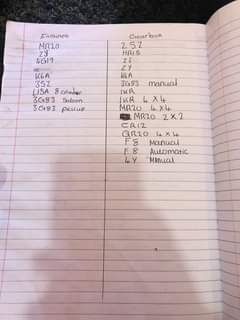 Engines Gearbox
MR20 2SZ
ZJ HR15
4G19 ZJ
ZY
K6A K6A
3SZ 3G83 manual
L15A 8 1KR
3G83 Saloon 1KR 4x4
3G83 MR20 4x4
MR20 2x2
CR12
QR20 4x4
F8 Manual
F8 Automatic
4Y Manual